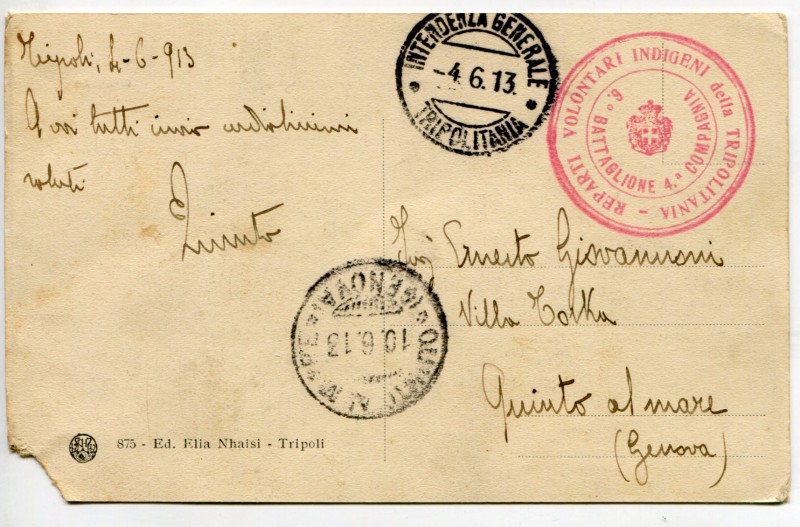 Tripoli, 4-6-913
A voi tutti invio cordialissimi
saluti
Quinto
INTENDENZA GENERALE
-4.6.13.
TRIPOLITANIA
REPARTI VOLONTARI INDIGENI della TRIPOLITANIA -
6.° BATTAGLIONE 4.ª COMPAGNIA
Sig Ernesto Giovannoni
Villa
Quinto al mare
(Genova)
QUINTO AL MARE
(GENOVA)
10.6.13
875 - Ed. Elia Nhaisi - Tripoli